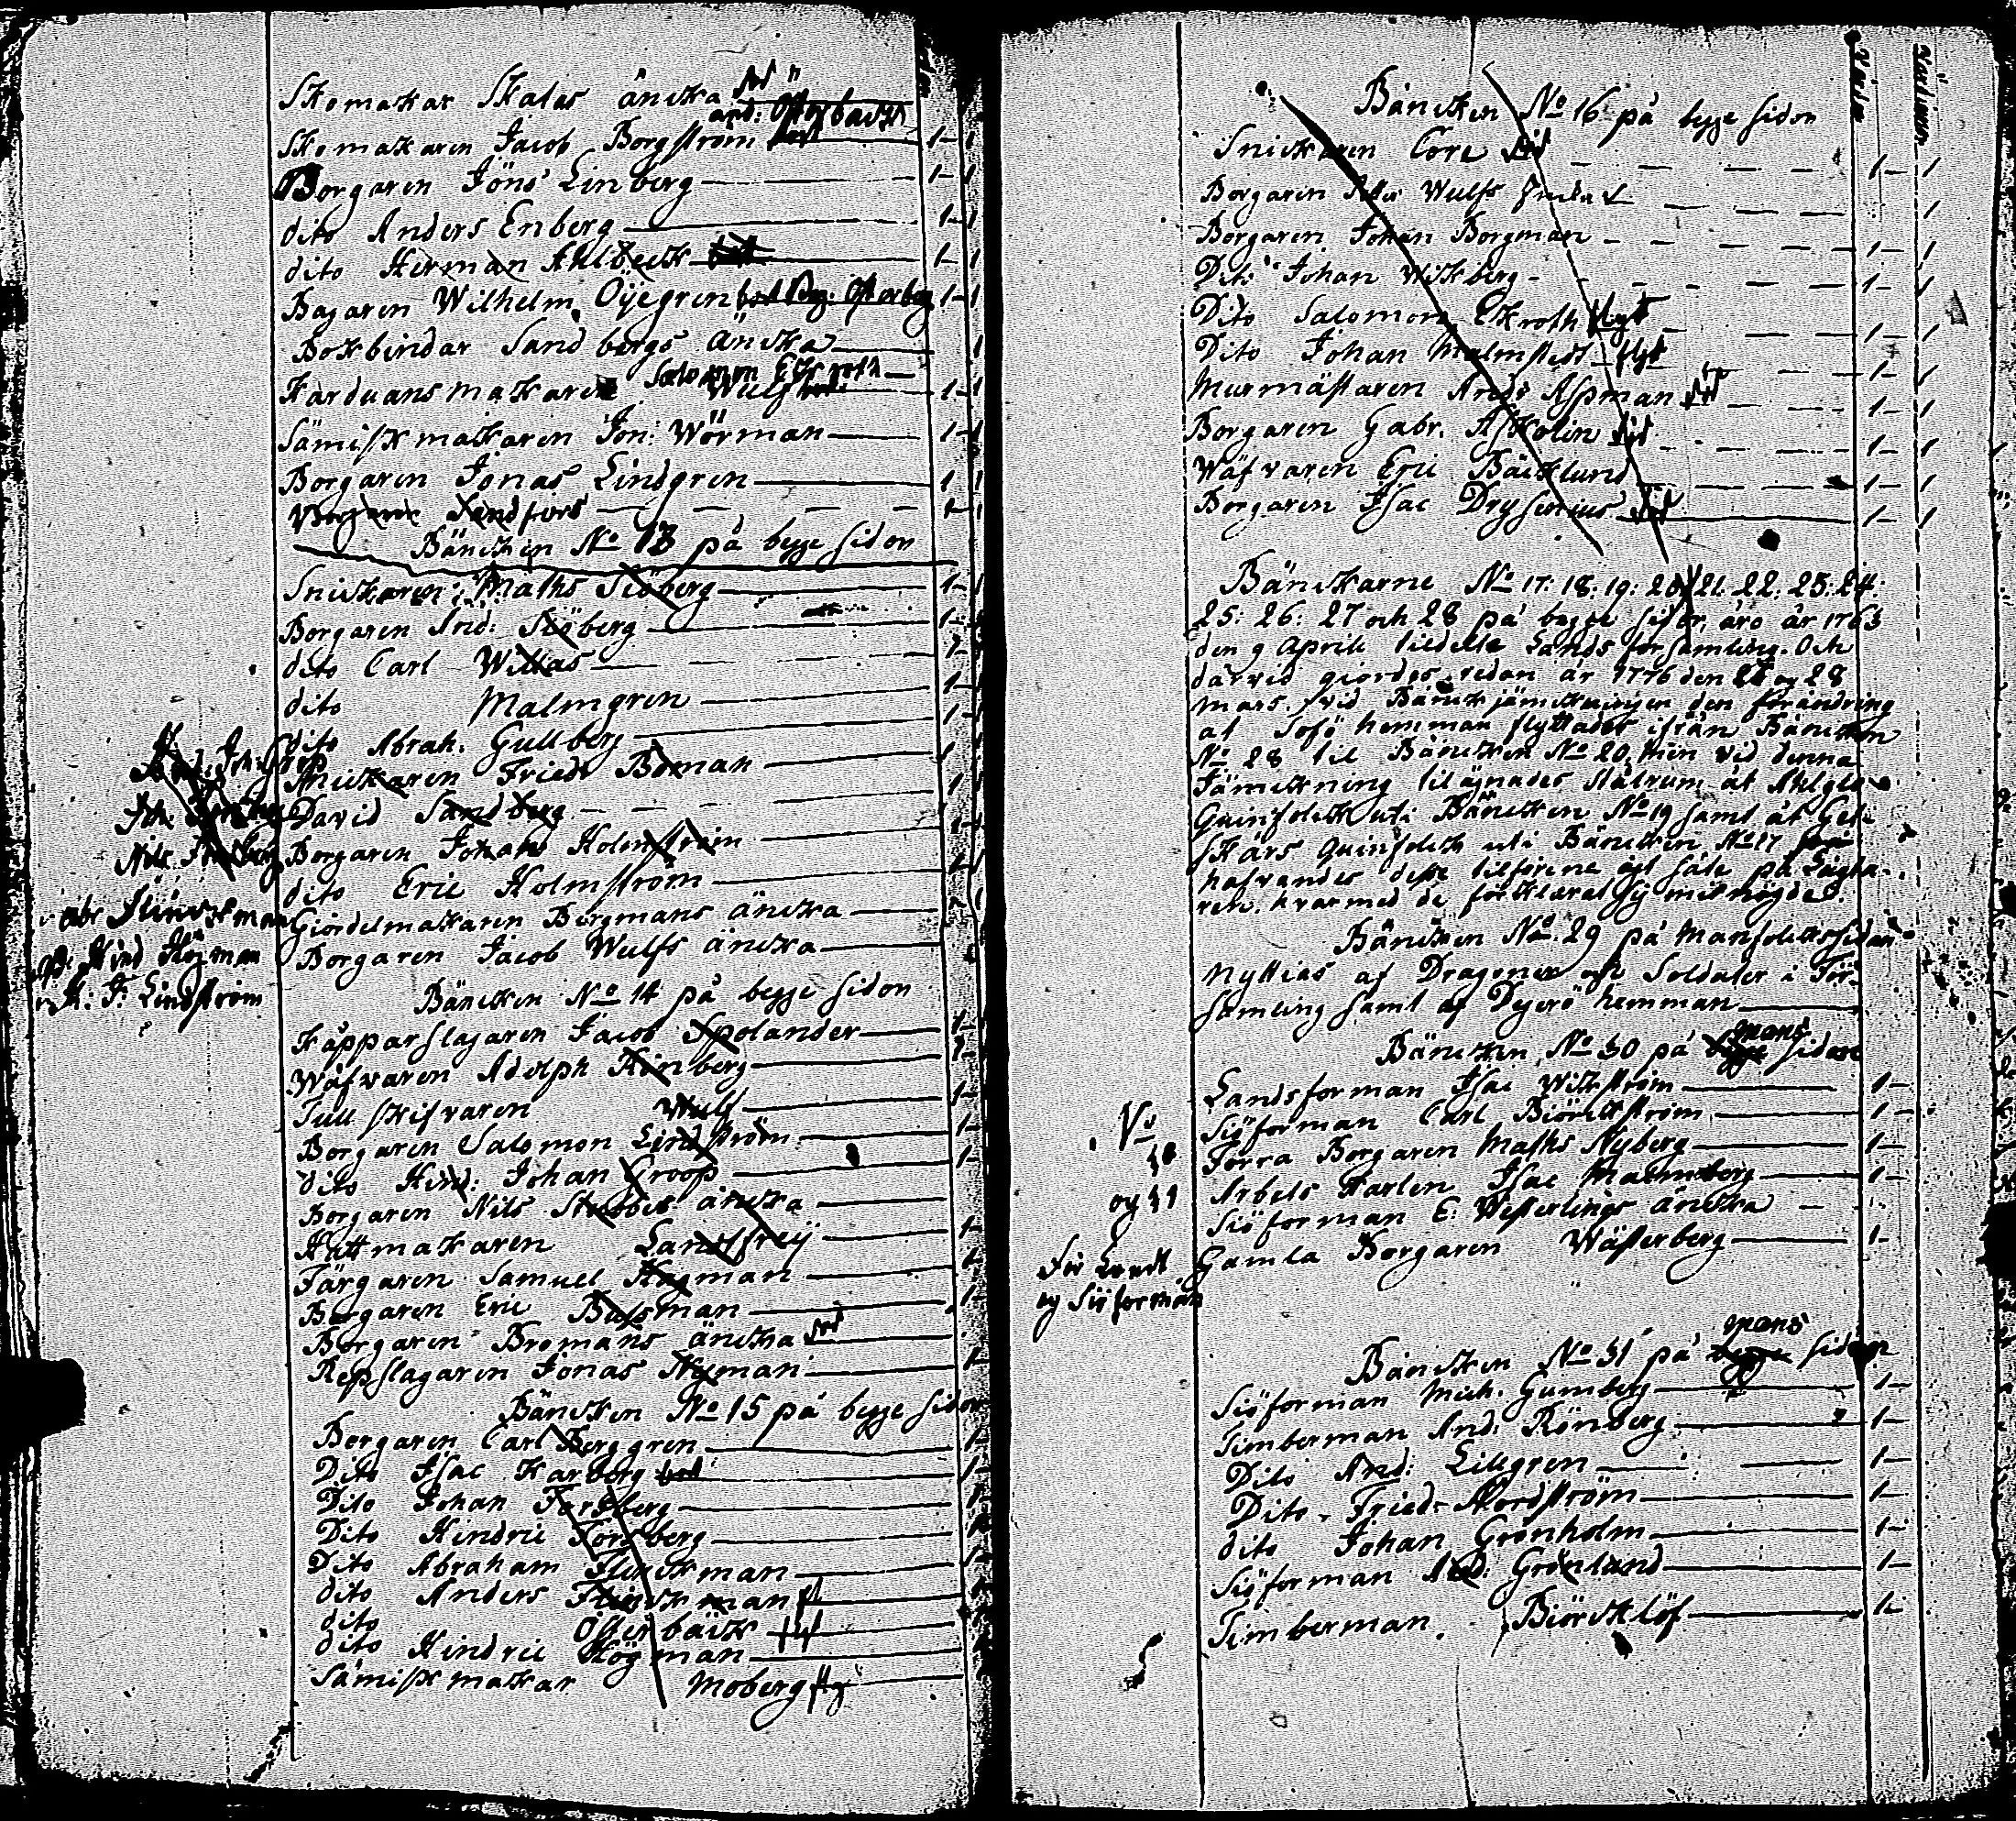 Skomakar Skalas äncka död
And: Österback
Skomakaren Jacob Borgström död 1 1
Borgaren Jöns Linberg 1 1
dito Anders Enberg 1 1
dito Herman Ahlbeck 1 1
Bagaren Wilhelm Öyegren 1 1
Bokbindar Sandbergs äncka 1
Salomon Ekroth
Karduansmakaren Wulf 1 1
Sämiskmakaren Jon: Wörman 1 1
Borgaren Jonas Lindgren 1 1
Borgaren Sandfors 1
Bäncken No 13 på begge sidor
Snickaren Maths Siöberg 1 1
Borgaren Frid: Siöberg 1
dito Carl Willas 1
dito Malmgren 1
dito Abrah. Gullberg 1
Friedr Boman 1
David Sandberg 1
Borgaren Johans Holmström 1
dito Eric Holmström 1
Giördelmakaren Bergmans äncka
Borgaren Jacob Wulfs äncka
Abr Flinckman
Hind Högman
J: Lindström
Bäncken No 14 på begge sidor
Kåpparslagaren Jacob Spolander 1
Wäfvaren Adolph Rönberg 1
Tullskrifvaren Wulf 1
Borgaren Salomon Lindström 1
dito Hind: Johan Groop 1
Borgaren Nils Stubbes äncka
Hattmakaren 1
Färgaren Samuel Hagman 1
Borgaren Eric Bussman 1
Borgaren Bromans äncka död
Repslagaren Jonas Nyman 1
Bäncken No 15 på begge sidor
Borgaren Carl Berggren 1
Dito Isac Karberg 1
Dito Johan Forsberg 1
Dito Hindric Forsberg 1
Dito Abraham Flinckman 1
dito Anders Flinckman
dito Österbäck
dito Hindric Högman
Sämiskmakar Moberg
Karlar
Bäncken No 16 på begge sidor
Snickaren Core död 1 1
Borgaren Wulfs 1
Borgaren Johan Borgman 1 1
Dito Johan Wickberg 1 1
Dito Salomon Ekroth flyt 1 1
Dito Johan Malmstedt flyt 1 1
Murmästaren Ands Aspman död 1 1
Borgaren Gabr. Askolin död 1 1
Wäfvaren Eric Bäcklund 1 1
Borgaren Isac Drysenius död 1 1
Bänckarne No 17: 18: 19: 20: 21: 22: 23: 24:
25: 26: 27 och 28 på begge sidor, äro år 1763
den 9 Aprili tildelte Lands församling. Och
därvid giordes sedan år 1776 den 27 og 28
mars. vid Bänckjämckningen den förändring
at Sofö hemman flyttades ifrån Bäncken
No 28 til Bäncken No 20, men vid denna
Jämckning tilägnades stålrum åt
Quinfolck uti Bäncken No 19 samt åt
skärs Quinfolck uti Bäncken No 17
hafvandes desse tilförene ägt säte på
ren. hvarmed de förklarat sig misnögde.
Bäncken No 29 på Mansfolckssidan
nyttias af Dragoner och Soldater i För-
samling samt af Dyerö hemman
Bäncken No 30 på mans sidan
Landsforman Isac Wickström 1
Siöforman Carl Biörckström 1
Förra Borgaren Maths Nyberg 1
Arbets Karlen Isac Malmberg 1
Siöforman E: Westerlings äncka
Gamla Borgaren Wästerberg 1
No
30
og 31
för Landt
og Siöformän
Bäncken No 31 på mans sidan
Siöforman Mich. Gumberg 1
Timberman And: Rönberg 1
Dito And: Lilgren 1
Dito Friedr Nordström 1
dito Johan Grönholm 1
Siöforman And: Grönlund 1
Timberman Biörcklöf 1